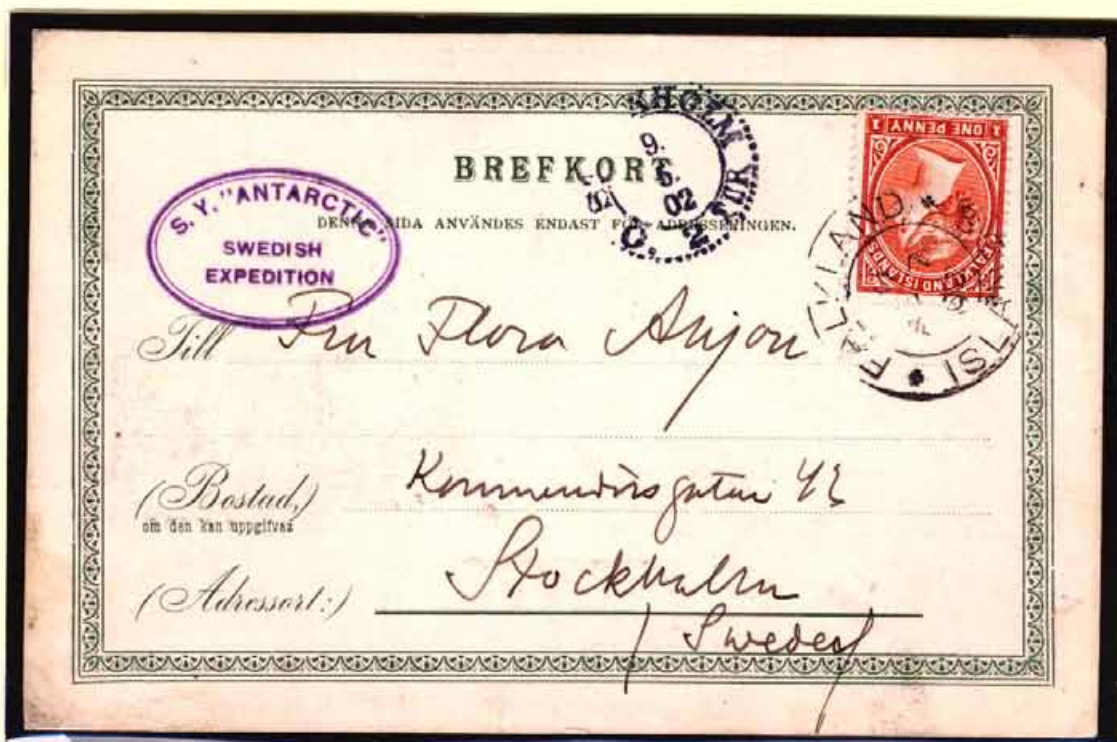 BREFKORT
DENNA SIDA ANVÄNDES ENDAST FÖR ADRESSERINGEN.
S. Y. "ANTARCTIC"
SWEDISH
EXPEDITION
KHOLM
9.
6.
02
TUR 2
ONE PENNY
FALKLAND ISLANDS
FALKLAND ISL
Till Fru Flora
(Bostad,)
om den kan uppgifvas
Kommendörsgatan 42
(Adressort:) Stockholm
/ Sweden /